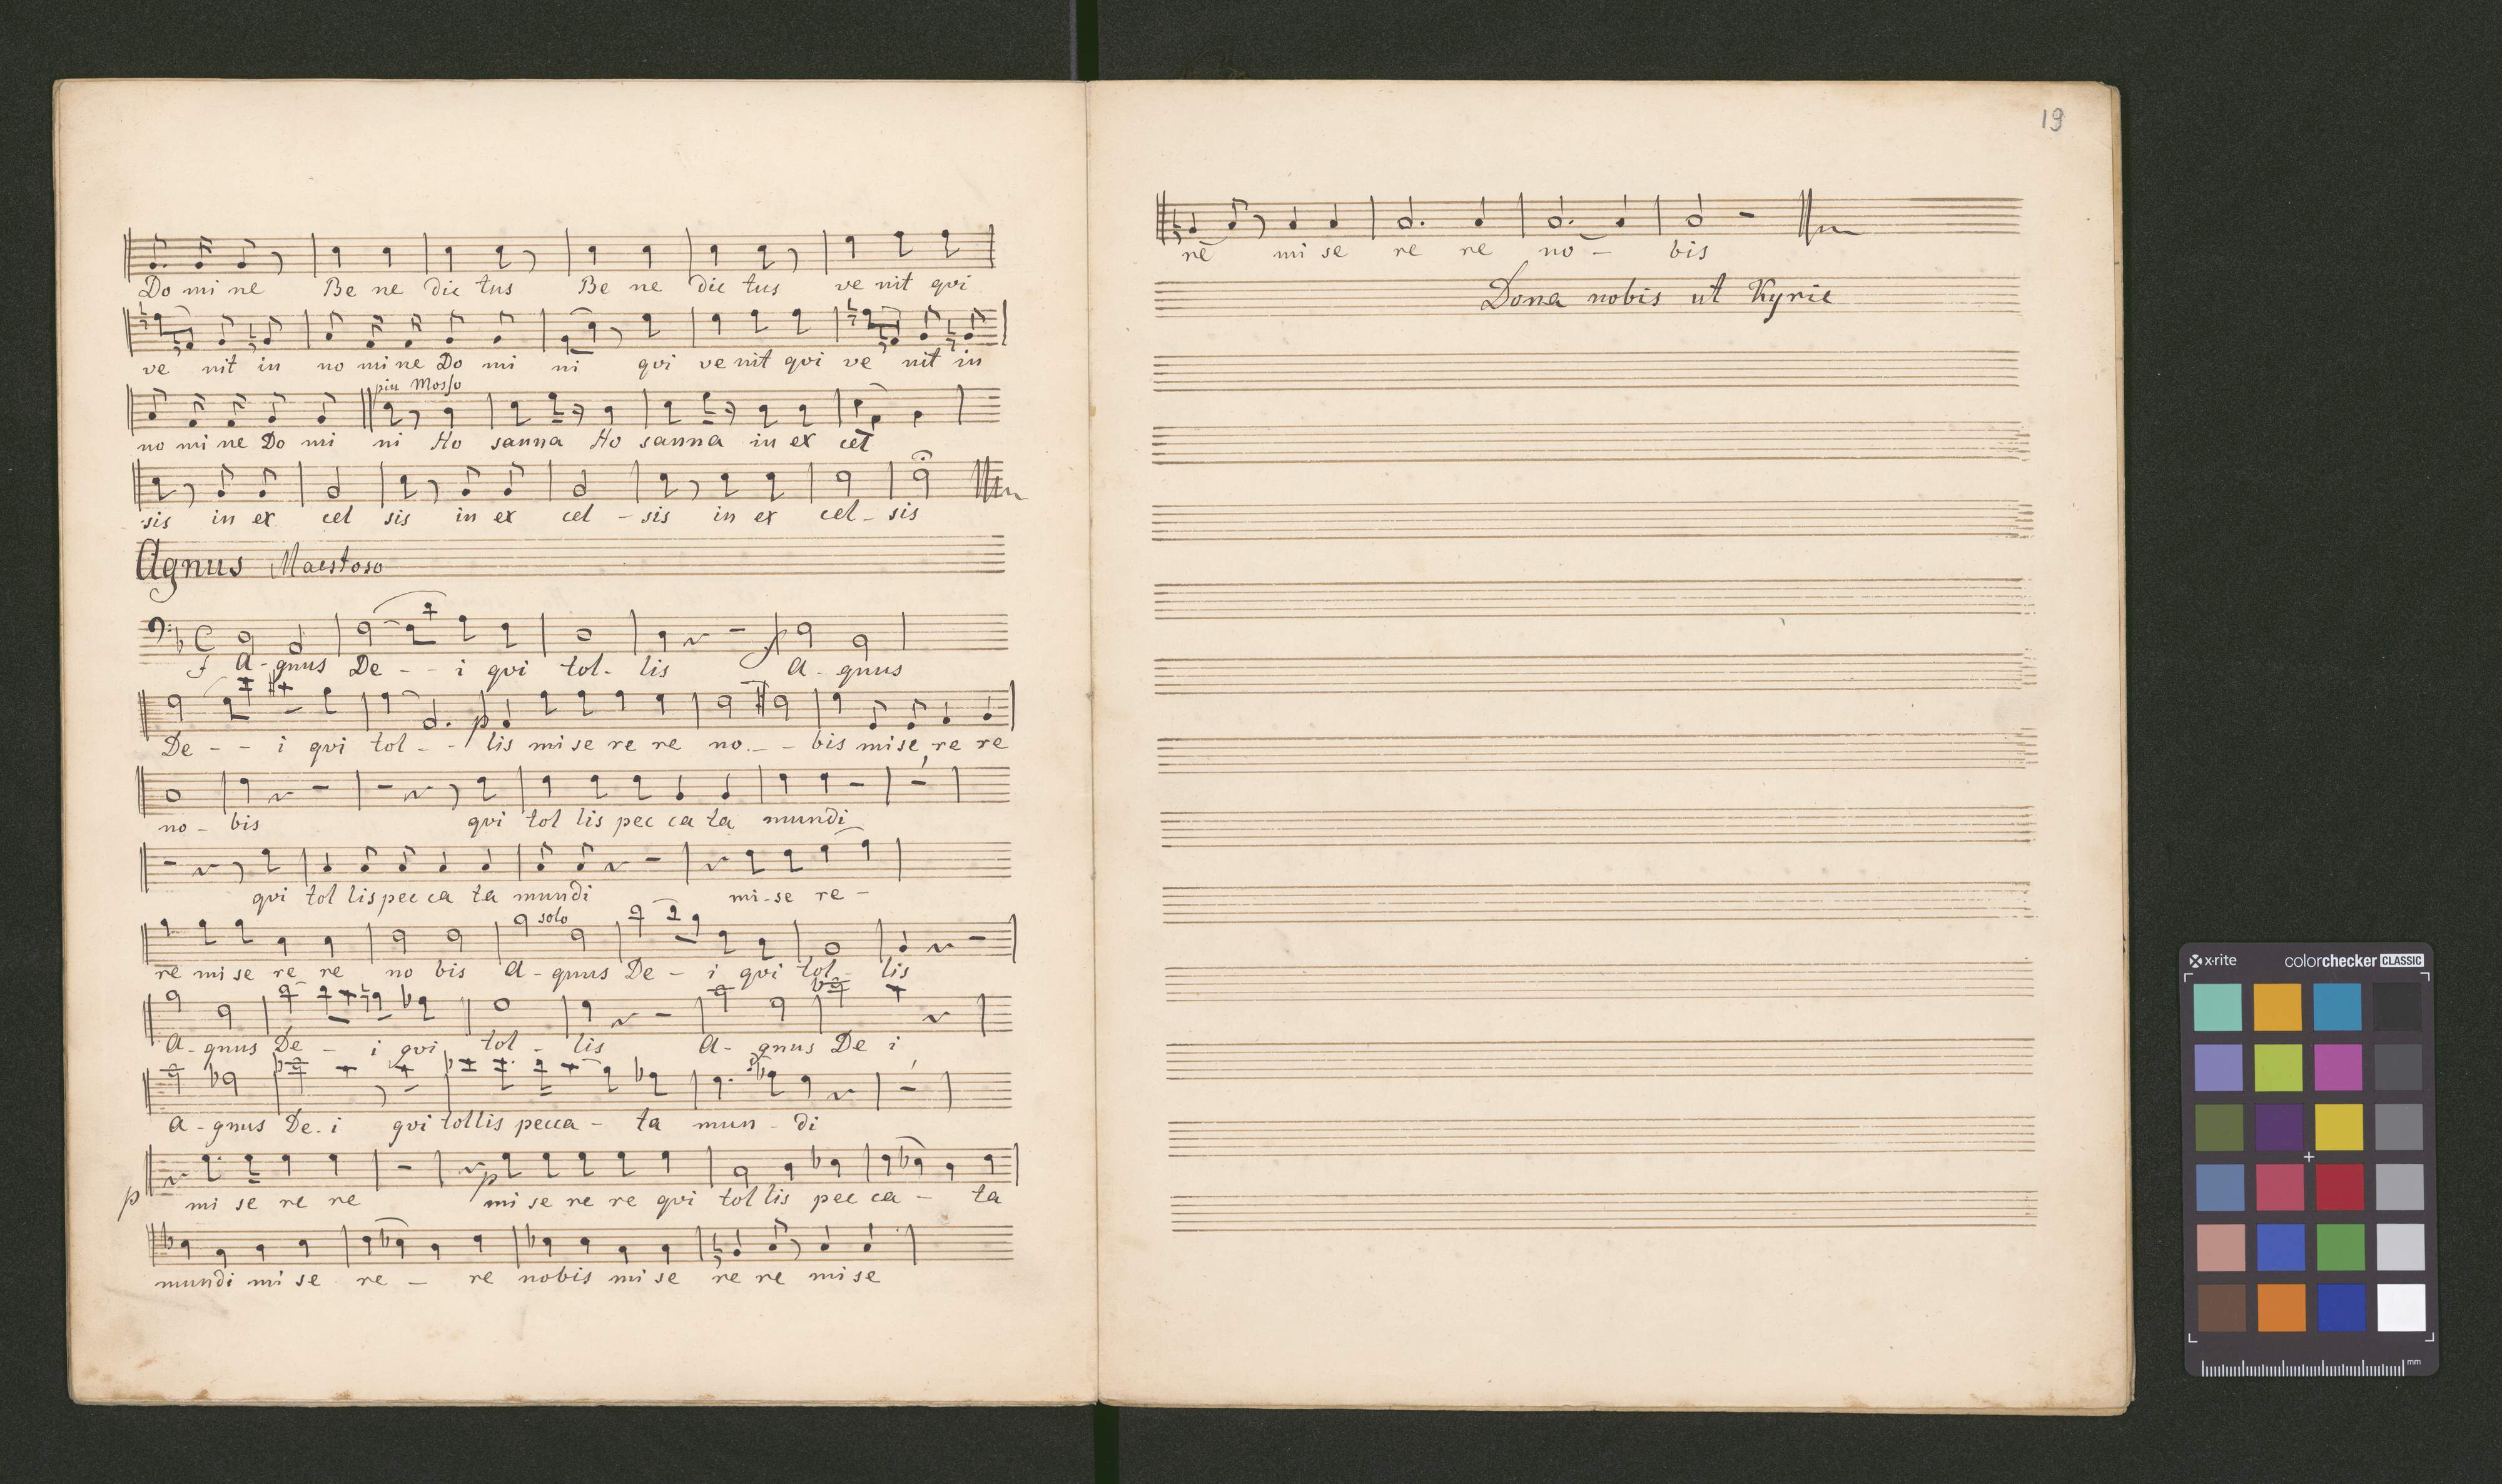 Do mi ne Be ne dic tus Be ne dic tus ve nit qvi
ve nit in no mi ne Do mi ni qvi ve nit qvi ve nit in
piu Mosso
no mi ne Do mi ni Ho sanna Ho sanna in ex cel
sis in ex cel sis in ex cel - sis in ex cel - sis
Agnus Maestoso
f A - gnus De - - i qvi tol - lis f A - gnus
De - - i qvi tol - - p lis mi se re re no - - bis mi se re re
no - bis qvi tol lis pec ca ta mundi
qvi tol lis pec ca ta mundi mi - se re -
solo
re mi se re re no bis A - gnus De - i qvi tol - lis
A - gnus De - i qvi tol - lis A - gnus De i
A - gnus De - i qvi tollis pecca - ta mun - di
p mi se re re p mi se re re qvi tol lis pec ca - ta
mundi mi se re - re nobis mi se re re mi se
19
re mi se re re no - bis
Dona nobis ut Kyrie
x-rite colorchecker CLASSIC
mm